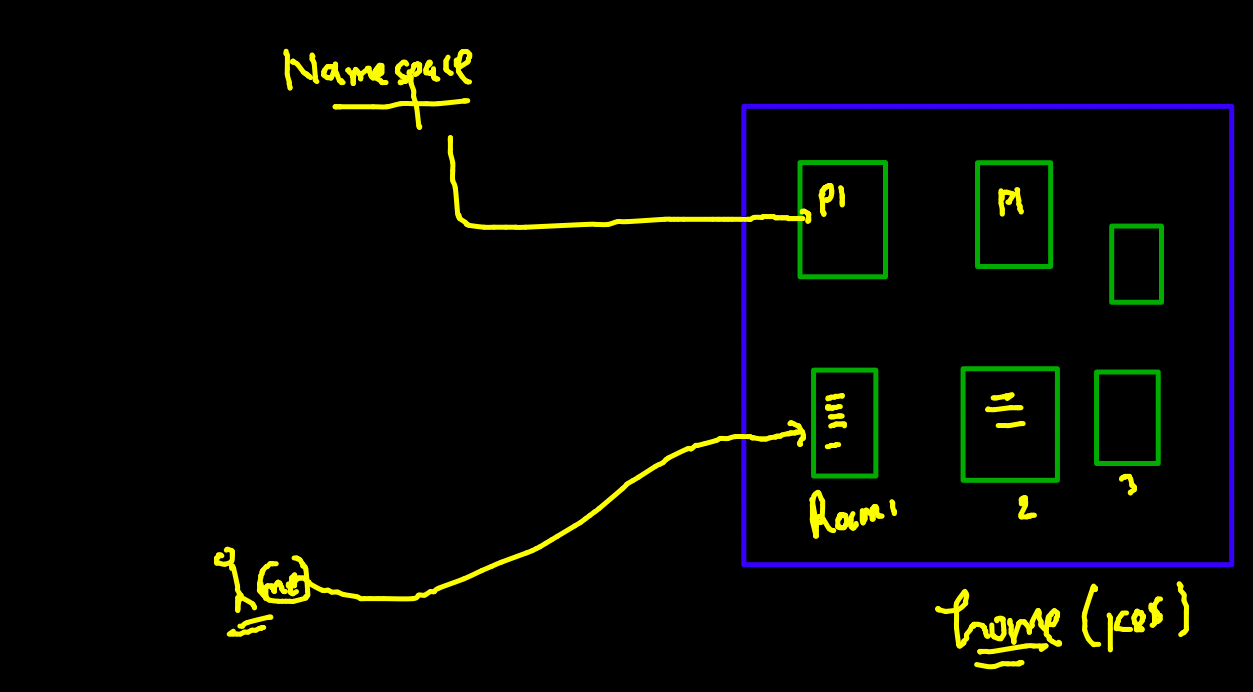 Namespace
P1
P1
Room 1
2
3
(me)
home (k8s)